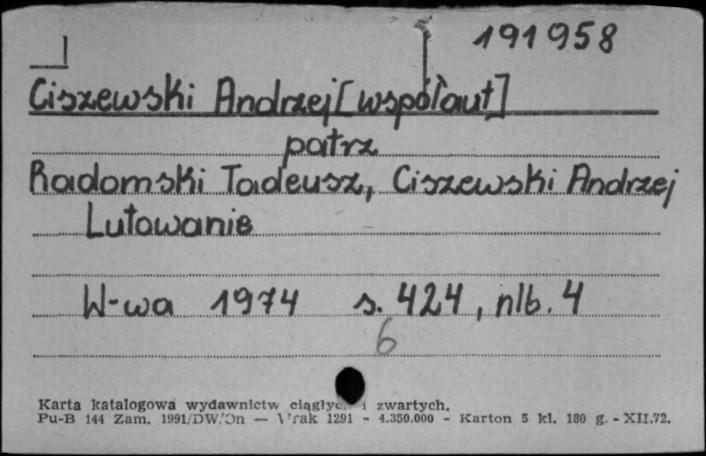 191958
Ciszewski Andrzej [współaut]
patrz
Radomski Tadeusz, Ciszewski Andrzej
Lutowanie
W-wa 1974 s. 424, nlb. 4
6
Karta katalogowa wydawnictw ciągłych i zwartych.
Pu-B 144 Zam. 1991/DW/On — 1291 - 4.350.000 - Karton 5 kl. 180 g. - XII.72.